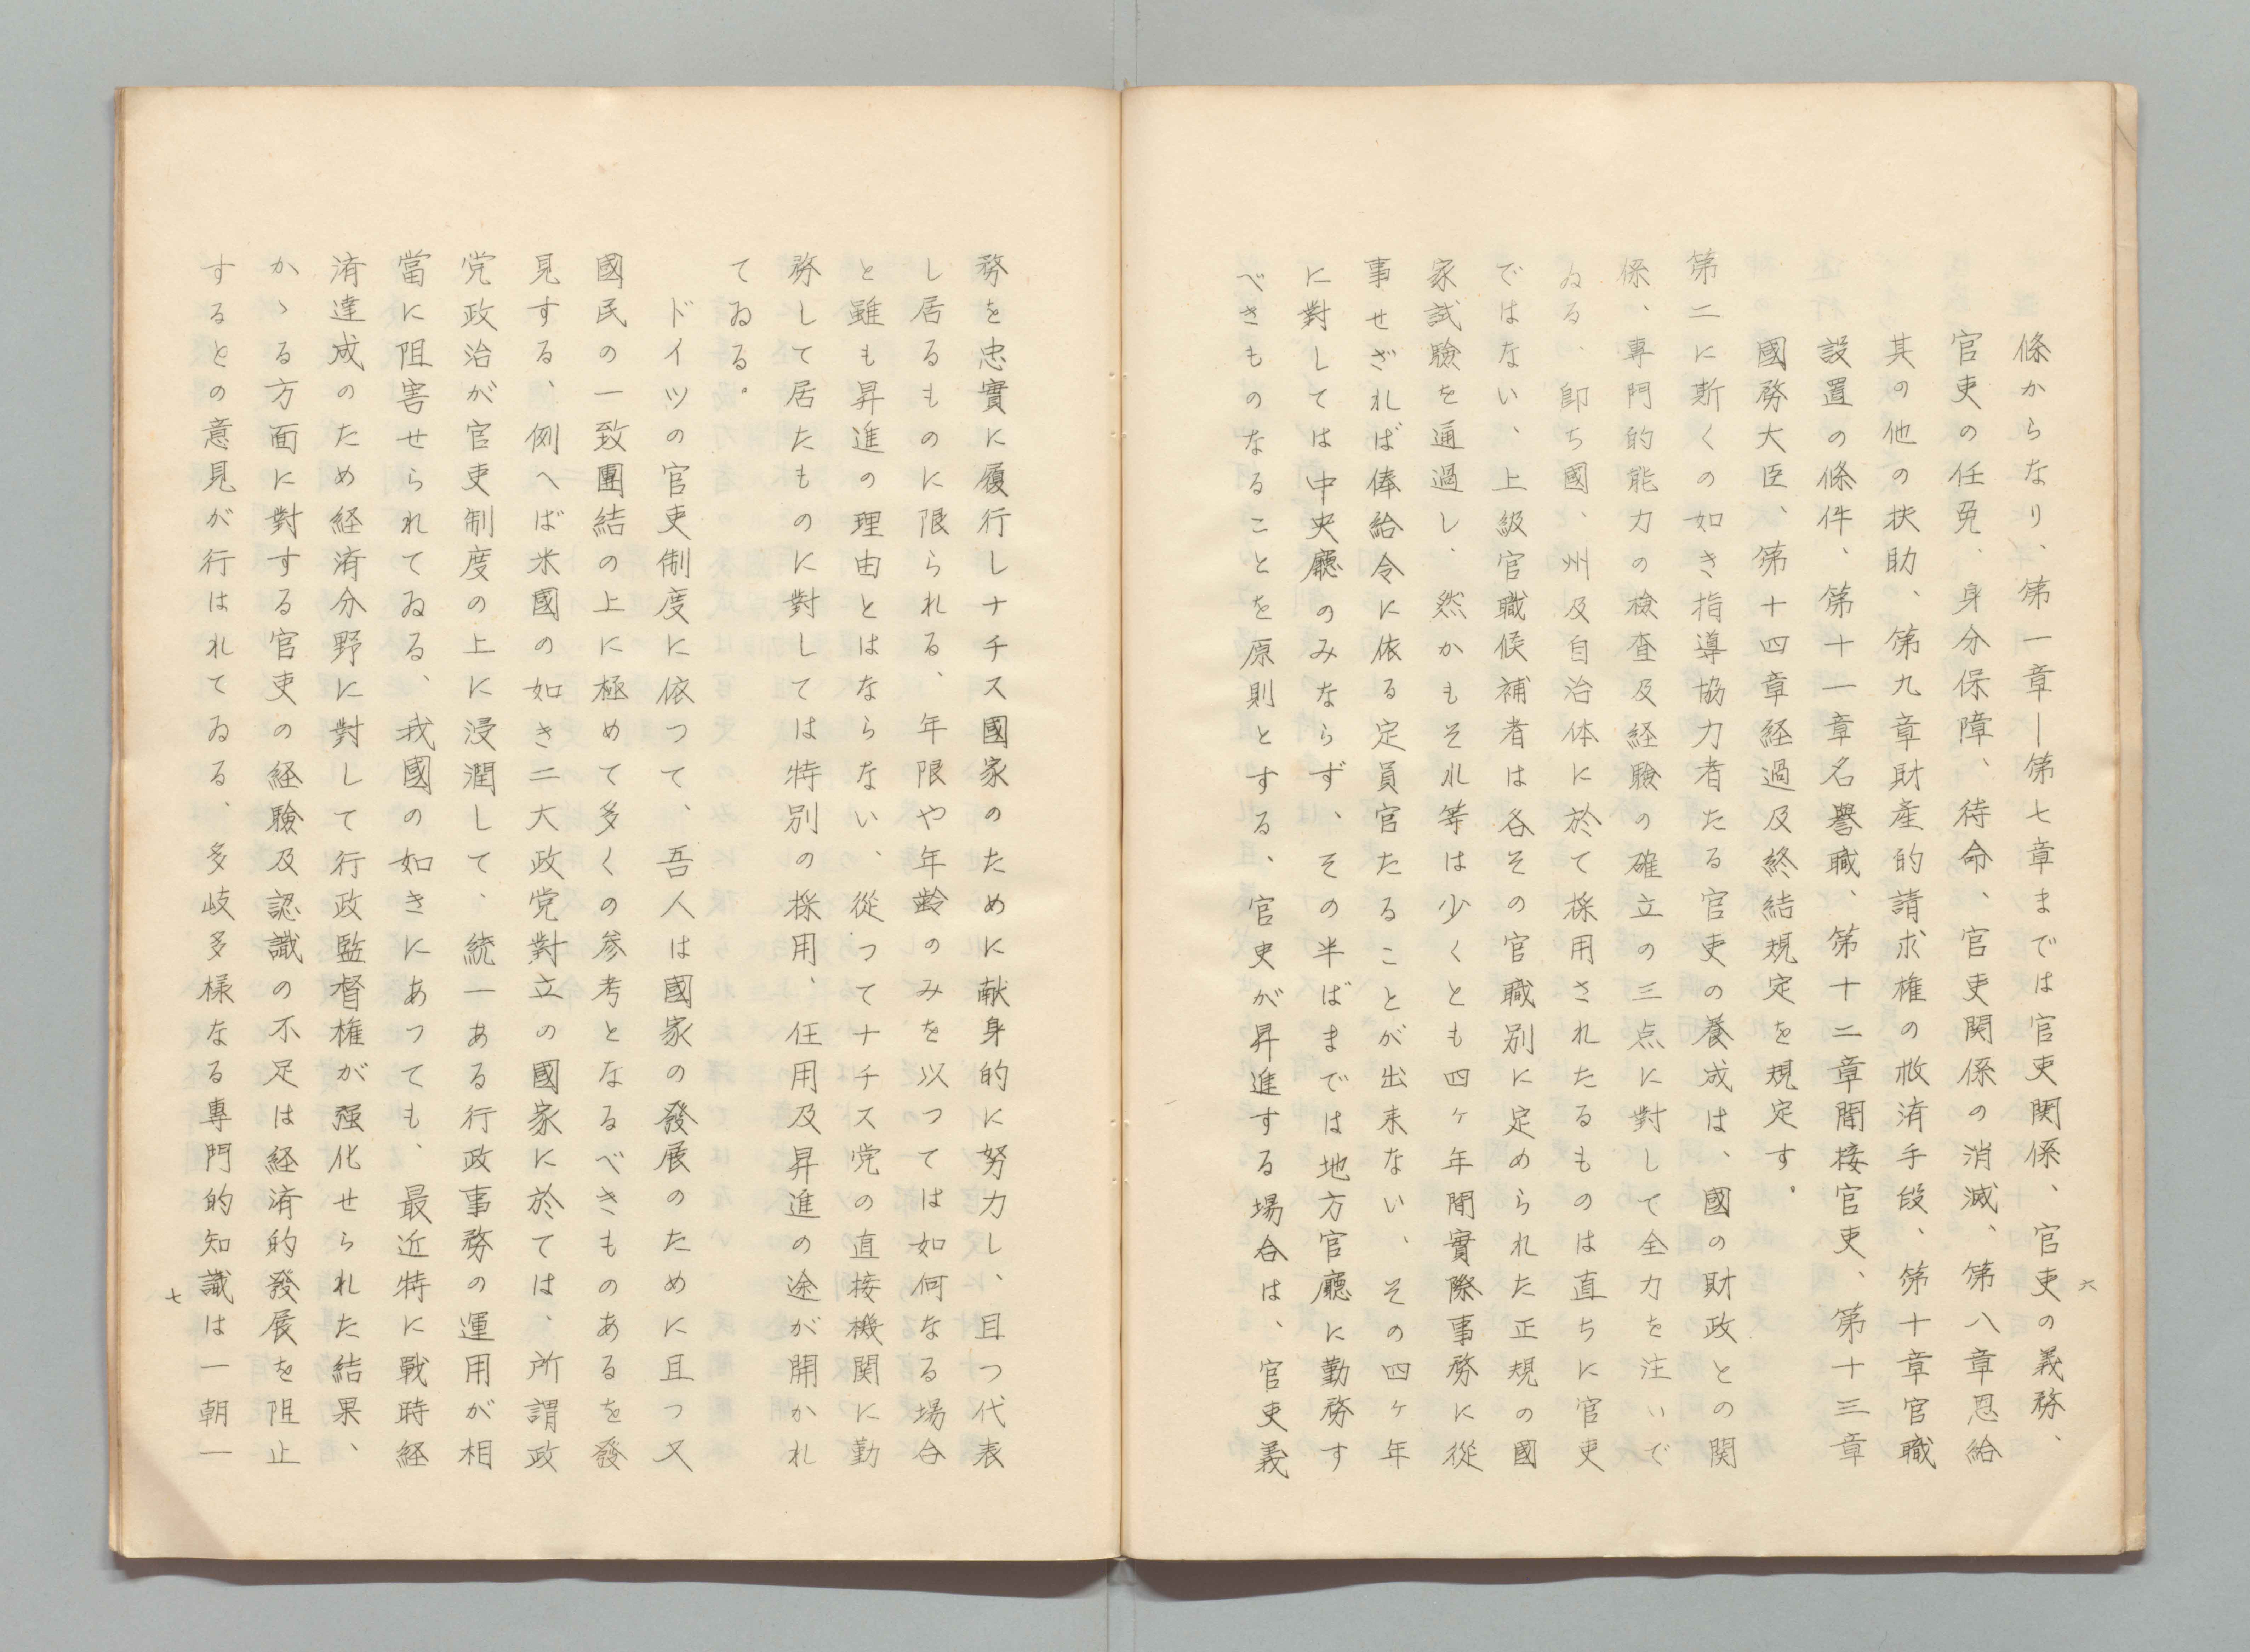 條からなり、第一章―第七章までは官吏関係、官吏の義務、
官吏の任免、身分保障、待命、官吏関係の消滅、第八章恩給
其の他の扶助、第九章財產的請求権の救済手段、第十章官職
設置の條件、第十一章名譽職、第十二章間接官吏、第十三章
國務大臣、第十四章経過及終結規定を規定す。
第二に斯くの如き指導協力者たる官吏の養成は、國の財政との関
係、専門的能力の檢査及経驗の確立の三点に對して全力を注いで
ゐる、卽ち國、州及自治体に於て採用されたるものは直ちに官吏
ではない、上級官職候補者は各その官職別に定められた正規の國
家試驗を通過し、然かもそれ等は少くとも四ヶ年間實際事務に從
事せざれば俸給令に依る定員官たることが出来ない、その四ヶ年
に對しては中央廳のみならず、その半ばまでは地方官廳に勤務す
べきものなることを原則とする、官吏が昇進する場合は、官吏義
六
務を忠實に履行しナチス國家のために献身的に努力し、且つ代表
し居るものに限られる、年限や年齡のみを以つては如何なる場合
と雖も昇進の理由とはならない、從つてナチス党の直接機関に勤
務して居たものに對しては特別の採用、任用及昇進の途が開かれ
てゐる。
ドイツの官吏制度に依つて、吾人は國家の發展のために且つ又
國民の一致團結の上に極めて多くの参考となるべきものあるを發
見する、例へば米國の如き二大政党對立の國家に於ては、所謂政
党政治が官吏制度の上に浸潤して、統一ある行政事務の運用が相
當に阻害せられてゐる、我國の如きにあつても、最近特に戰時経
済達成のため経済分野に對して行政監督権が强化せられた結果、
かゝる方面に對する官吏の経驗及認識の不足は経済的發展を阻止
するとの意見が行はれてゐる、多岐多様なる專門的知識は一朝一
七